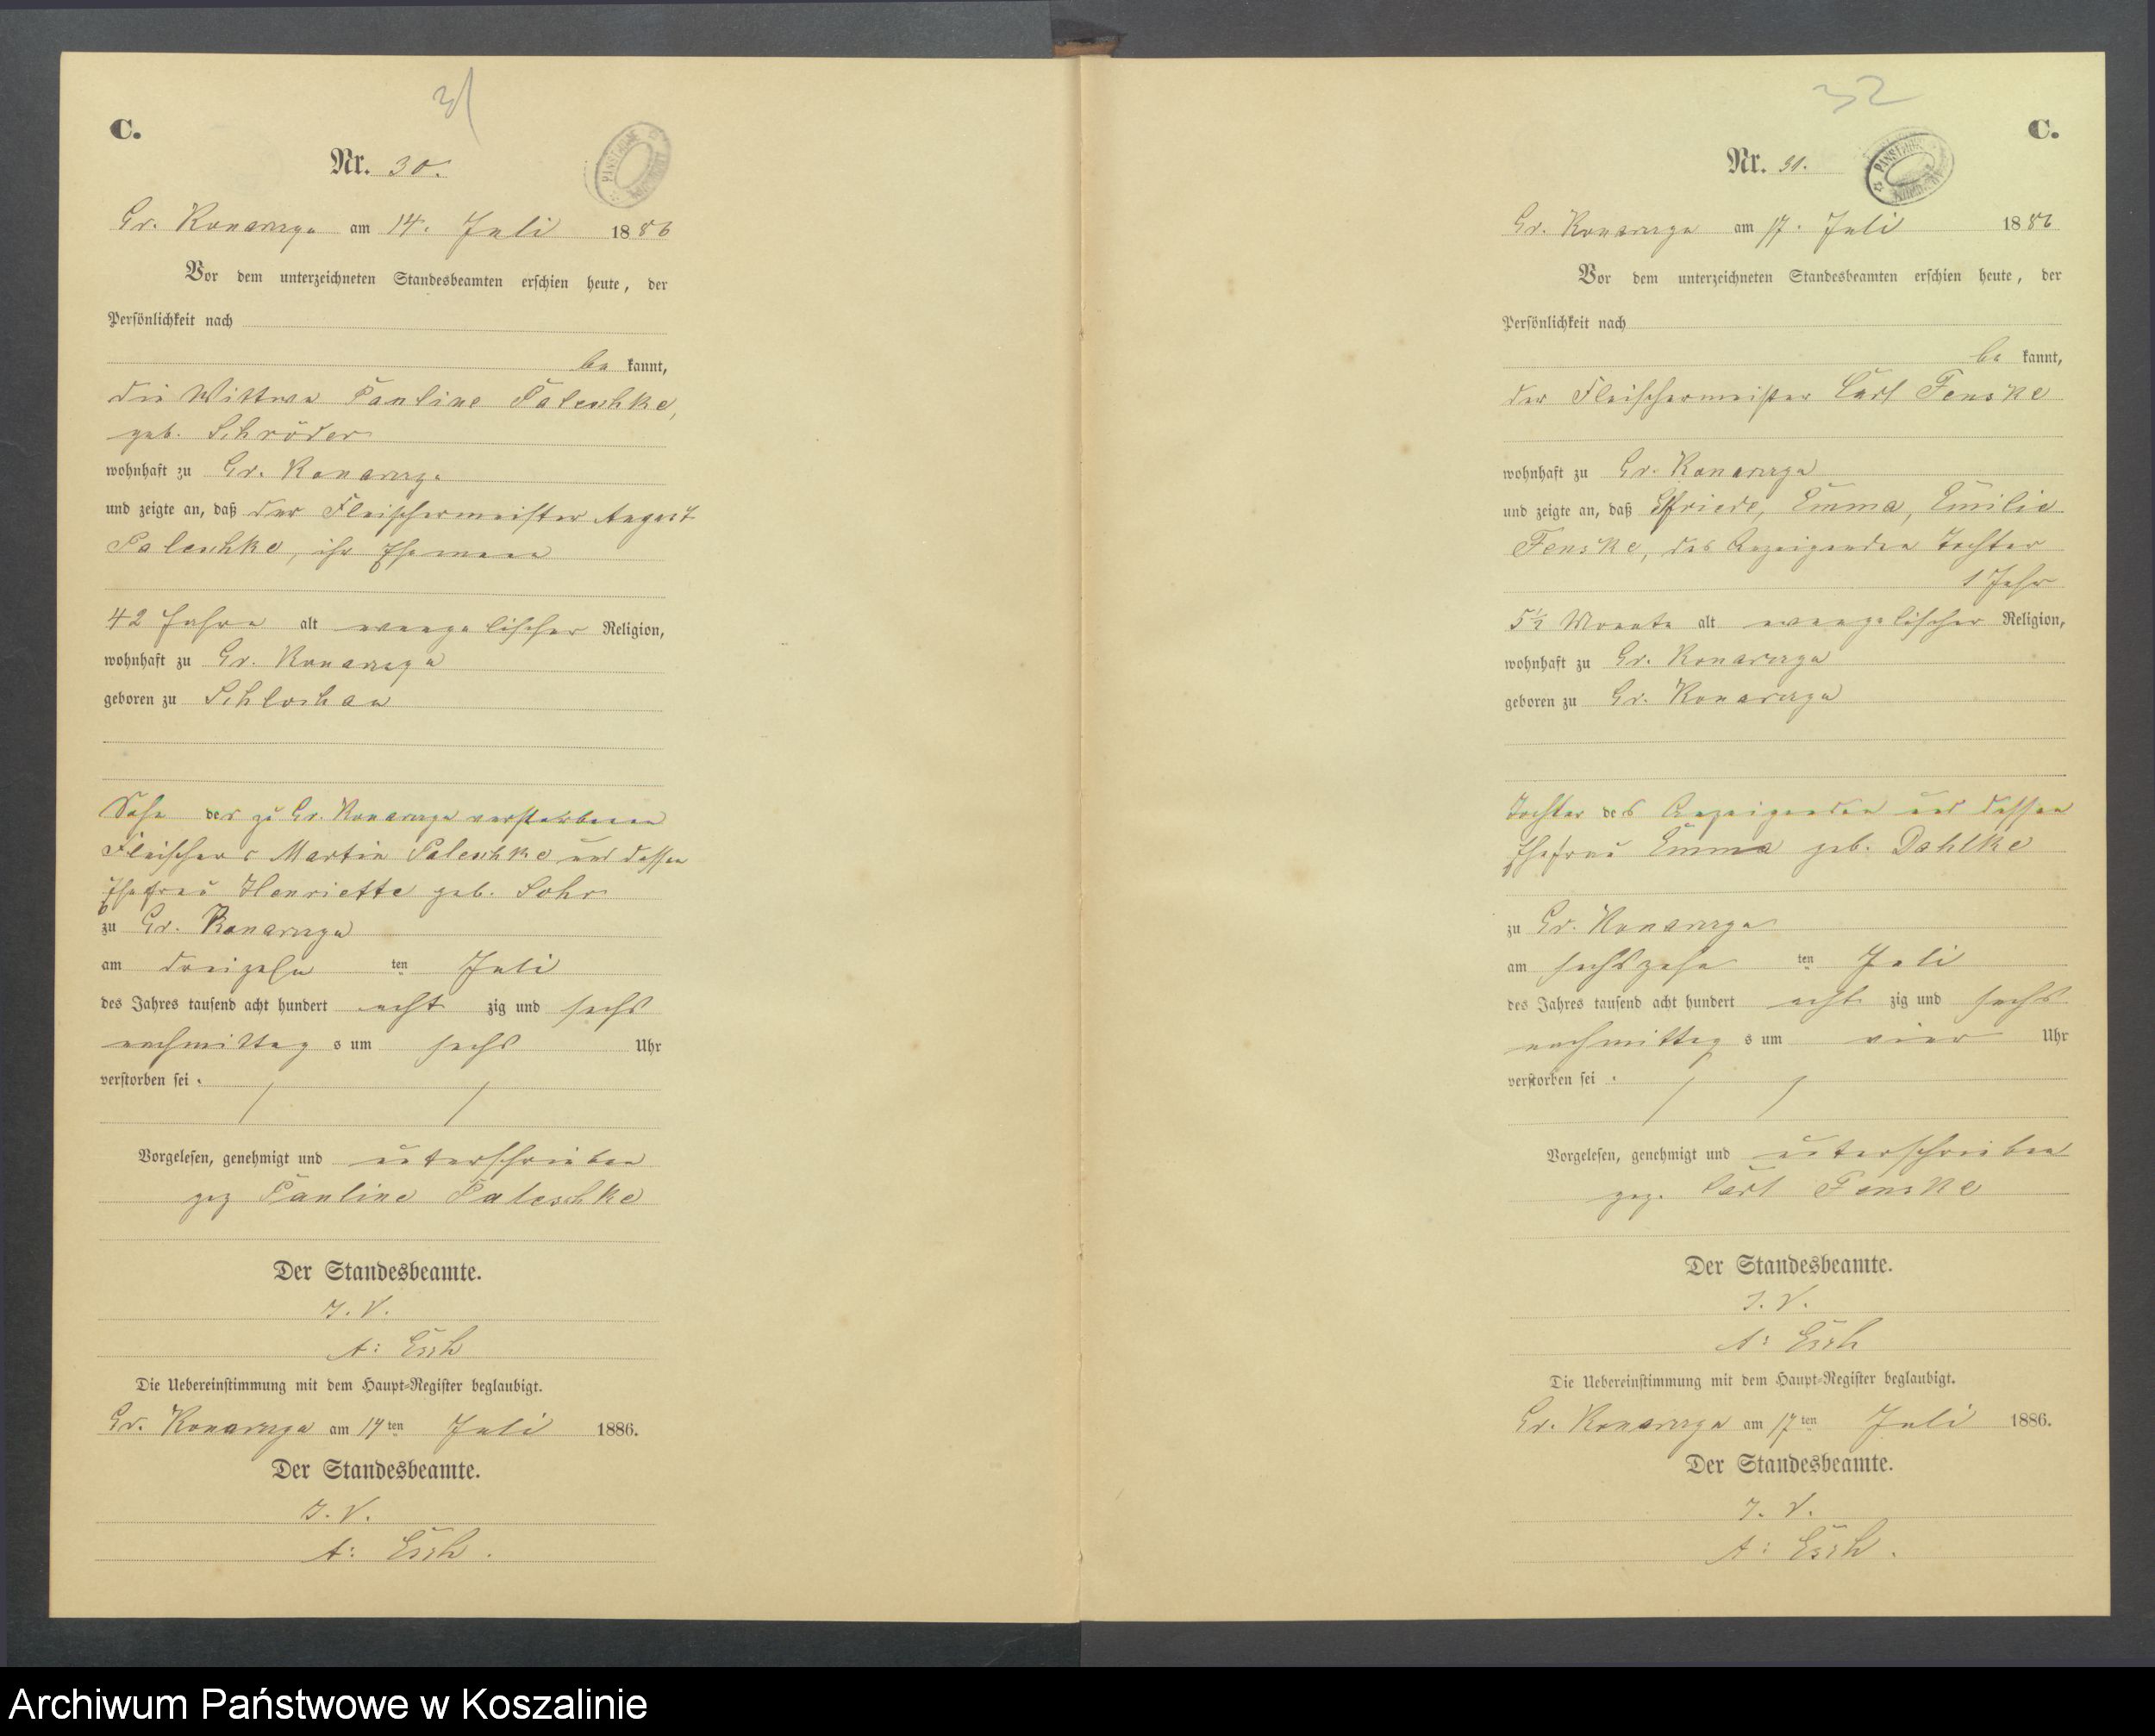 31
C.
Nr. 30.
Gr. Konarczyn am 14. Juli 1886
Vor dem unterzeichneten Standesbeamten erschien heute, der
Persönlichkeit nach
be kannt,
die Wittwe Pauline Paleschke,
geb. Schröder
wohnhaft zu Gr. Konarczyn
und zeigte an, daß der Fleischermeister August
Paleschke, ihr Ehemann
42 Jahre alt evangelischer Religion,
wohnhaft zu Gr. Konarczyn
geboren zu Schlochau
Sohn des zu Gr. Konarczyn verstorbenen
Fleischers Martin Paleschke und dessen
Ehefrau Henriette geb. Sohr
zu Gr. Konarczyn
am dreizehn ten Juli
des Jahres tausend acht hundert acht zig und sechs
nachmittag s um sechs Uhr
verstorben sei.
Vorgelesen, genehmigt und unterschrieben
gez Pauline Paleschke
Der Standesbeamte.
I. V.
A: Esch
Die Uebereinstimmung mit dem Haupt-Register beglaubigt.
Gr. Konarczyn am 14 ten Juli 1886.
Der Standesbeamte.
I. V.
A: Esch.
32
C.
Nr. 31.
PANSTWOWE
Gr. Konarczyn am 17. Juli 1886
Vor dem unterzeichneten Standesbeamten erschien heute, der
Persönlichkeit nach
be kannt,
der Fleischermeister Carl Fenske
wohnhaft zu Gr. Konarczyn
und zeigte an, daß Elfriede, Emma, Emilie
Fenske, des Anzeigenden Tochter
1 Jahr
5½ Monate alt evangelischer Religion,
wohnhaft zu Gr. Konarczyn
geboren zu Gr. Konarczyn
Tochter des Anzeigenden und dessen
Ehefrau Emma geb. Dahlke
zu Gr. Konarczyn
am sechszehn ten Juli
des Jahres tausend acht hundert acht zig und sechs
nachmittag s um vier Uhr
verstorben sei.
Vorgelesen, genehmigt und unterschrieben
gez. Carl Fenske
Der Standesbeamte.
I. V.
A: Esch
Die Uebereinstimmung mit dem Haupt-Register beglaubigt.
Gr. Konarczyn am 17 ten Juli 1886.
Der Standesbeamte.
I. V.
A: Esch.
Archiwum Państwowe w Koszalinie